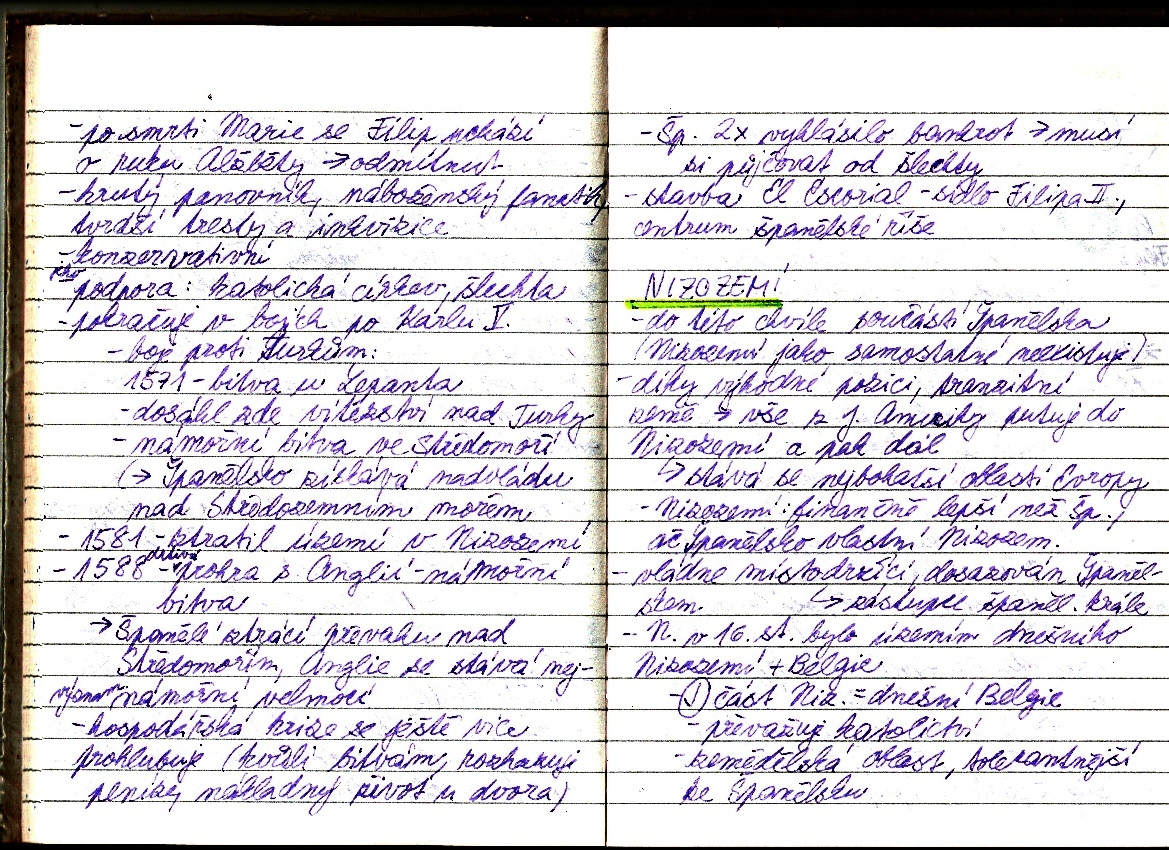 - po smrti Marie se Filip uchází
o ruku Alžběty → odmítnut
- krutý panovník, náboženský fanatik,
tvrdší tresty a inkvizice
- konzervativní
jeho
podpora: katolická církev, šlechta
- pokračuje v bojích po Karlu V.
- boj proti Turkům:
1571 - bitva u Lepanta
- dosáhl zde vítězství nad Turky
- námořní bitva ve Středomoří
(→ Španělsko získává nadvládu
nad Středozemním mořem
- 1581 - ztratil území v Nizozemí
- 1588 - drtivá prohra s Anglií - námořní
bitva
→ Španělé ztrácí převahu nad
Středomořím, Anglie se stává nej-
význam. námořní velmocí
- hospodářská krize se ještě více
prohlubuje (kvůli bitvám, rozhazují
peníze, nákladný život u dvora)
- Šp. 2x vyhlásilo bankrot → musí
si půjčovat od šlechty
- stavba El Escorial - sídlo Filipa II.,
centrum španělské říše
NIZOZEMÍ
- do této chvíle součástí Španělska
(Nizozemí jako samostatné neexistuje)
- díky výhodné pozici, tranzitní
země → vše z J. Ameriky putuje do
Nizozemí a pak dál
↳ stává se nejbohatší oblastí Evropy
- Nizozemí: finančně lepší než Šp.,
ač Španělsko vlastní Nizozem.
- vládne místodržící, dosazován Španěl-
skem ↳ zástupce španěl. krále
- N. v 16. st. bylo územím dnešního
Nizozemí + Belgie
- ① část Niz. = dnešní Belgie
- převažuje katolictví
- zemědělská oblast, tolerantnější
ke Španělsku